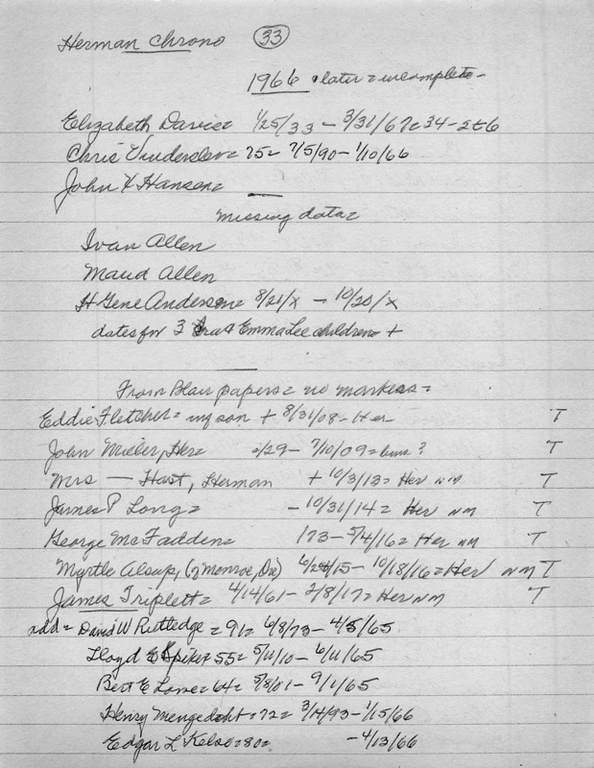 Herman Chrono 33
1966 & later = incomplete -
Elizabeth Davis = 1/25/33 - 3/31/67 = 34-2-6
Chris = 75 = 7/5/90 - 1/10/66
John H Hansen =
missing data =
Ivan Allen
Maud Allen
H Gene Anderson = 8/21/x - 10/20/x
dates for 3 Ira & Emma Lee children +
From Blair papers = no markers =
Eddie Fletcher = inf son + 8/31/08 - Her T
John Miller, Her = /29 - 7/10/09 = bur ? T
Mrs — Hast, Herman + 10/3/13 = Her nm T
James P Long = - 10/31/14 = Her nm T
George McFadden = 173 - 5/4/16 = Her nm T
Myrtle Alsup, (of Monroe, Ore) /15 - 10/18/16 = Her nm T
James Triplett = 4/14/61 - 2/8/17 = Her nm T
add = David W Rutledge = 91 = 6/8/73 - 4/5/65
Lloyd E Spiker = 55 = 5/11/10 - 6/11/65
Bert E Lowe = 64 = 5/8/01 - 9/1/65
Henry Mengedoht = 72 = 3/14/93 - 1/15/66
Edgar L Kelso = 80 = - 4/13/66